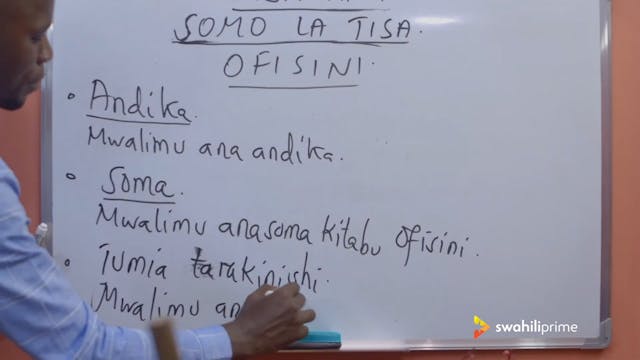 SOMO LA TISA.
OFISINI.
• Andika.
Mwalimu ana andika.
• Soma.
Mwalimu anasoma kitabu Ofisini.
• Tumia tarakinishi.
Mwalimu an
swahiliprime